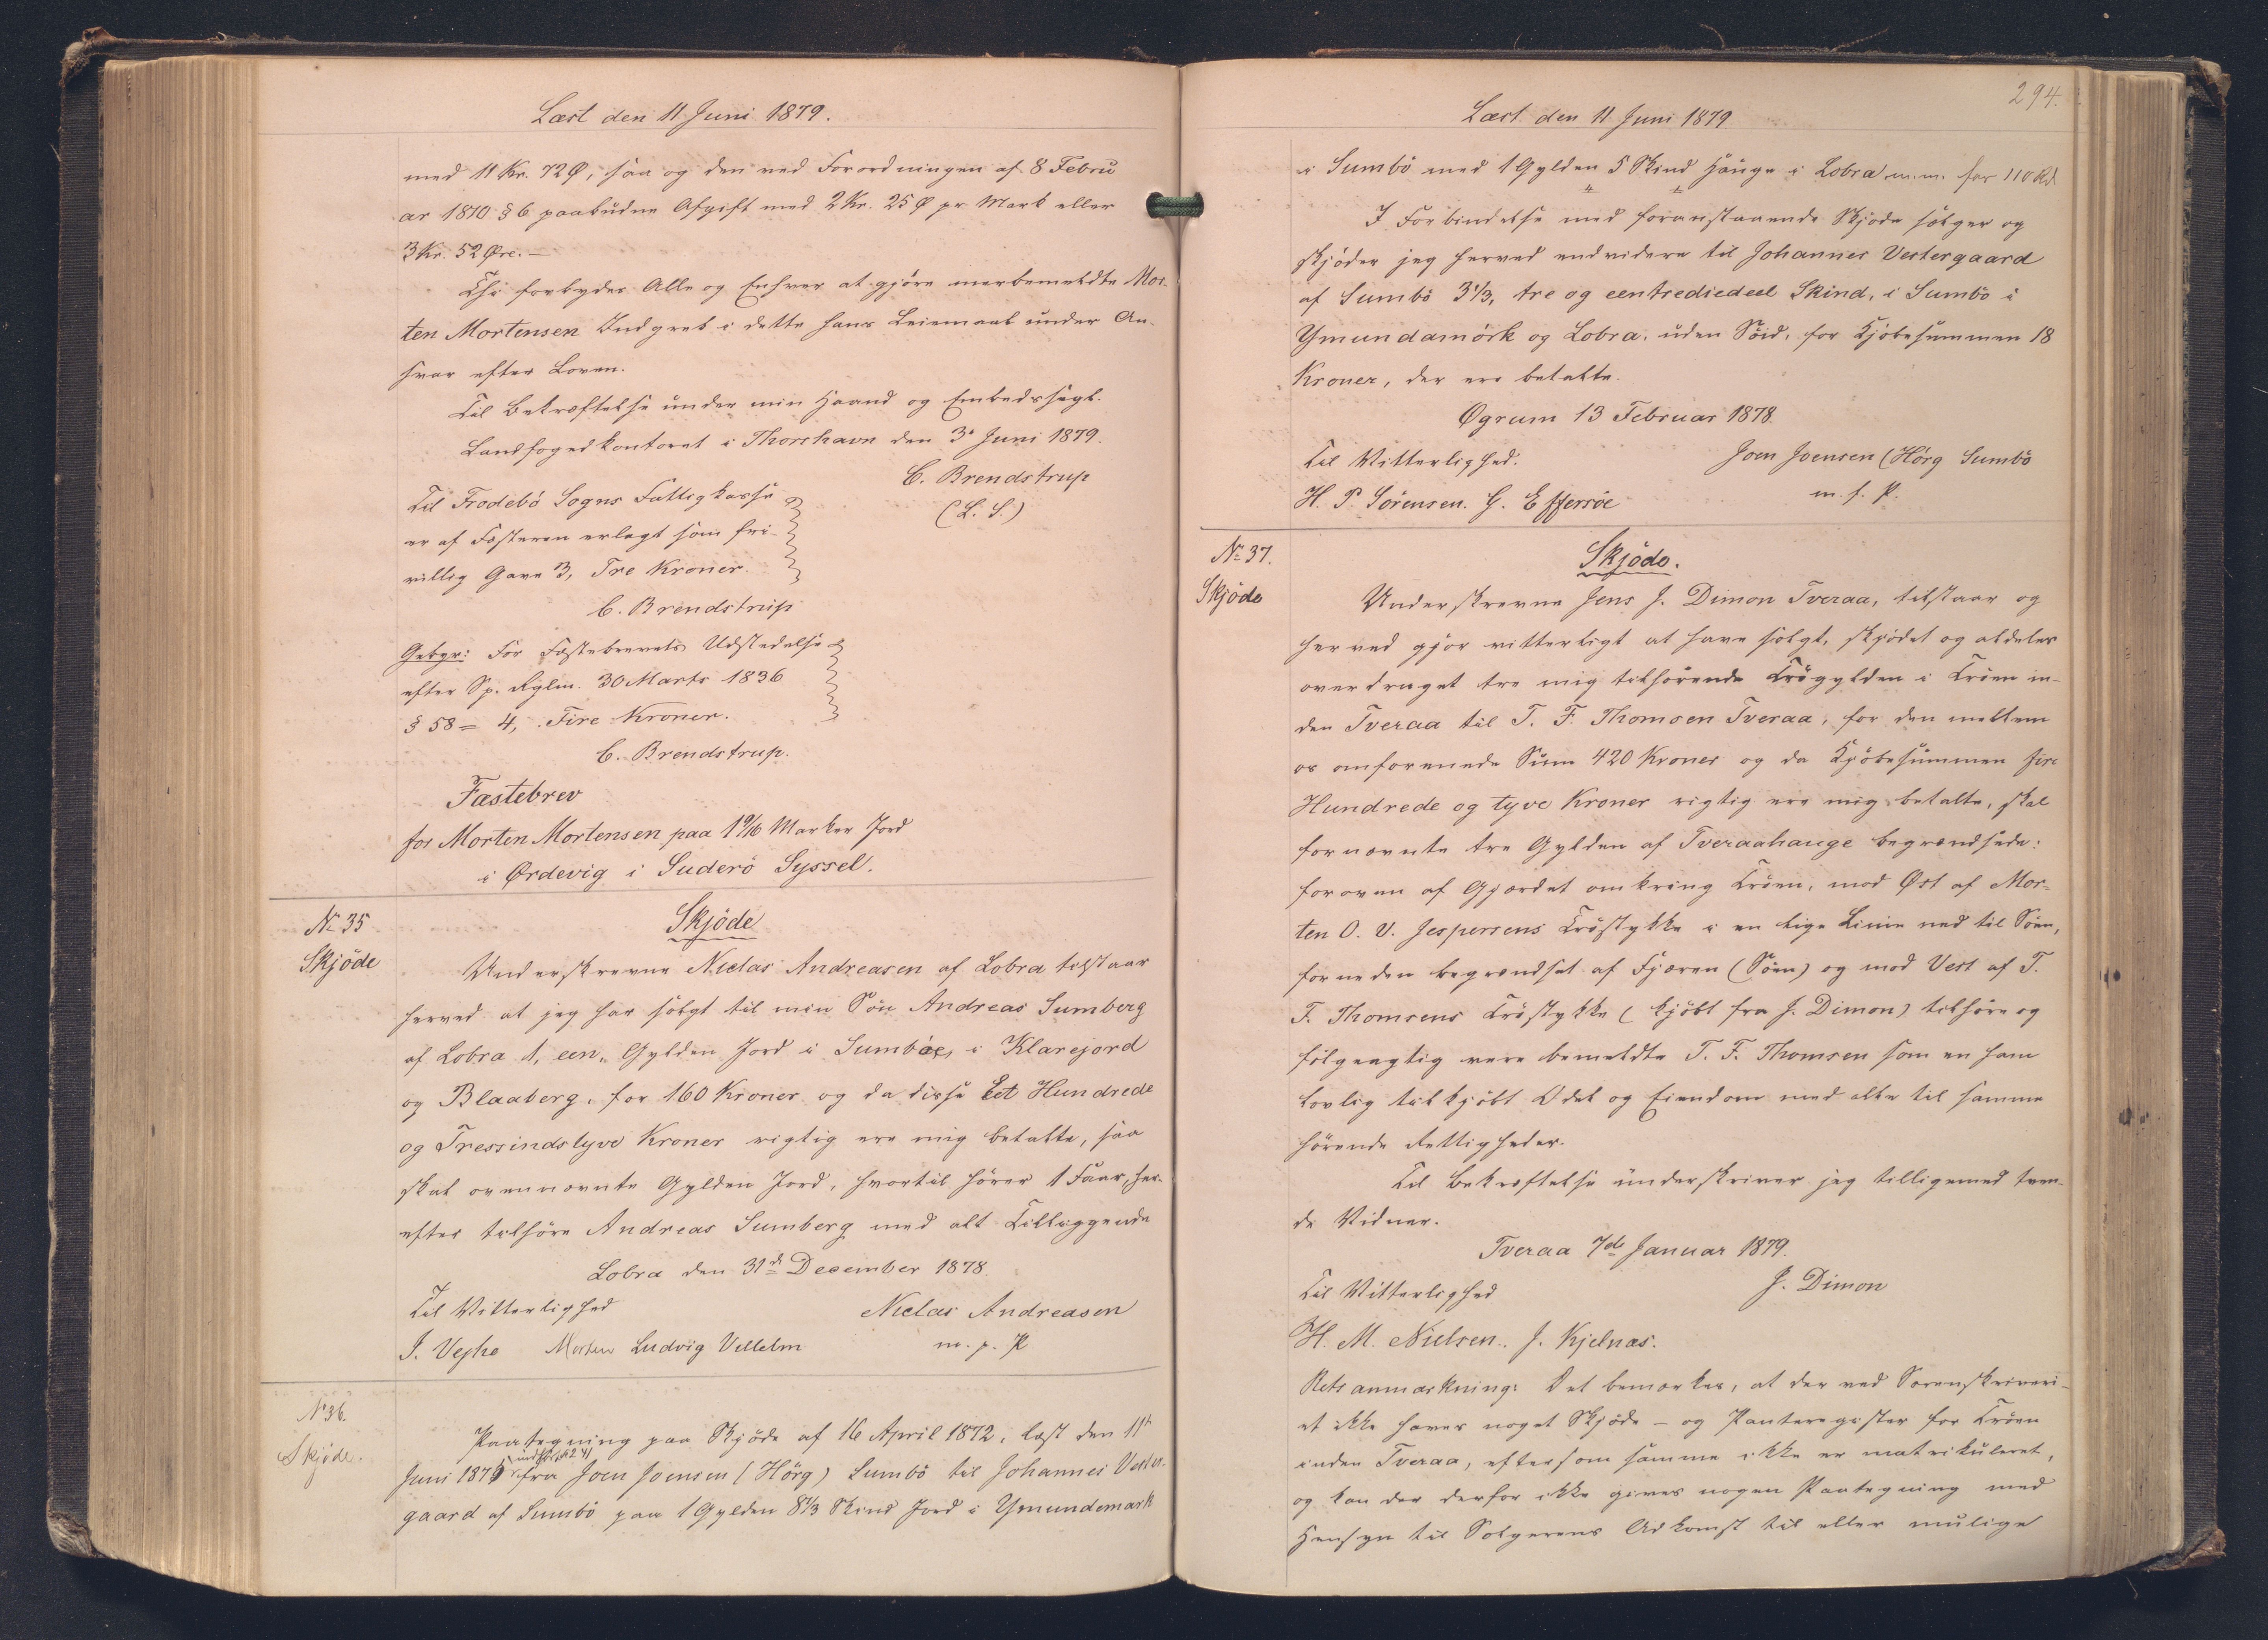 Læst den 11 Juni 1879.
med 11 Kr. 72 Ø, saa og den ved Forordningen af 8 Febru
ar 1810 § 6 paabudne Afgift med 2 Kr. 25 Ø pr. Mark eller
3 Kr. 52 Øre. —
Thi forbydes Alle og Enhver at gjøre merbemeldte Mor-
ten Mortensen Indgreb i dette hans Leiemaal under An-
svar efter Loven.
Til Bekræftelse under min Haand og Embedssegl.
Landfogedkontoret i Thorshavn den 3' Juni 1879.
C. Brendstrup
(L. S.)
Til Frodebö Sogns Fattigkasse
er af Fæsteren erlagt som fri-
villig Gave 3, Tre Kroner.
C. Brendstrup
Gebyr: For Fæstebrevets Udstedelse
efter Sp. Rglm. 30 Marts 1836
§ 58 = 4, Fire Kroner.
C. Brendstrup.
Fæstebrev
for Morten Mortensen paa 1 9/16 Marker Jord
i Ördevig i Suderö Syssel.
No 35
Skjöde
Skjöde
Underskrevne Niclas Andreasen af Lobra tilstaar
herved at jeg har solgt til min Sön Andreas Sumberg
af Lobra 1, een, Gylden Jord i Sumböe, i Klarejord
og Blaaberg, for 160 Kroner og da disse Eet Hundrede
og Tressindstyve Kroner rigtig ere mig betalte, saa
skal ovennævnte Gylden Jord, hvortil hörer 1 Faar, her-
efter tilhöre Andreas Sumberg med alt Tilliggende
Lobra den 31te December 1878.
Til Vitterlighed
Niclas Andreasen
J. Vejhe Morten Ludvig Vellelm
m. p. P
No 36.
Skjöde.
Paategning paa Skjöde af 16 April 1872, læst den 11te
Juni 1879 fra Joen Joensen (Hörg) Sumbö til Johannes Vester-
gaard af Sumbö paa 1 Gylden 8 1/3 Skind Jord i Ymundemark
294.
Læst den 11 Juni 1879
i Sumbö med 1 Gylden 5 Skind Hauge i Lobra m.m. for 110 Rd
I Forbindelse med foranstaaende Skjöde sælger og
skjöder jeg herved endvidere til Johannes Vestergaard
af Sumbö 3 1/3, tre og eentrediedeel Skind, i Sumbö i
Ymundamörk og Lobra, uden Söid, for Kjöbesummen 18
Kroner, der ere betalte.
Øgrum 13 Februar 1878.
Til Vitterlighed.
Joen Joensen (Hörg Sumbö
H. P. Sörensen. G. Effersöe
m. f. P.
No 37.
Skjöde
Skjöde.
Underskrevne Jens J. Dimon Tveraa, tilstaar og
herved gjör vitterligt at have solgt, skjödet og aldeles
overdraget tre mig tilhörende Tröegylden i Tröen in-
den Tveraa til T. F. Thomsen Tveraa, for den mellem
os omforenede Sum 420 Kroner og da Kjöbesummen fire
Hundrede og tyve Kroner rigtig ere mig betalte, skal
fornævnte tre Gylden af Tveraahauge begrændsede:
foroven af Gjærdet omkring Tröen, mod Øst af Mor-
ten O. V. Jespersens Tröstykke i en lige Linie ned til Söen,
forneden begrændset af Fjæren (Söen) og mod Vest af T.
F. Thomsens Tröstykke (kjöbt fra J. Dimon) tilhöre og
fölgeagtig være bemeldte T. F. Thomsen som en ham
lovlig tilkjöbt Odel og Eiendom med alle til samme
hörende Rettigheder.
Til Bekræftelse underskriver jeg tilligemed tven-
de Vidner.
Tveraa 7de Januar 1879.
Til Vitterlighed
J. Dimon
H. M. Nielsen. J. Kjelnæs.
Retsanmærkning: Det bemærkes, at der ved Sorenskriveri-
et ikke haves noget Skjöde- og Panteregister for Tröen
inden Tveraa, eftersom samme ikke er matrikuleret,
og kan der derfor ikke gives nogen Paategning med
Hensyn til Sælgerens Adkomst til eller mulige